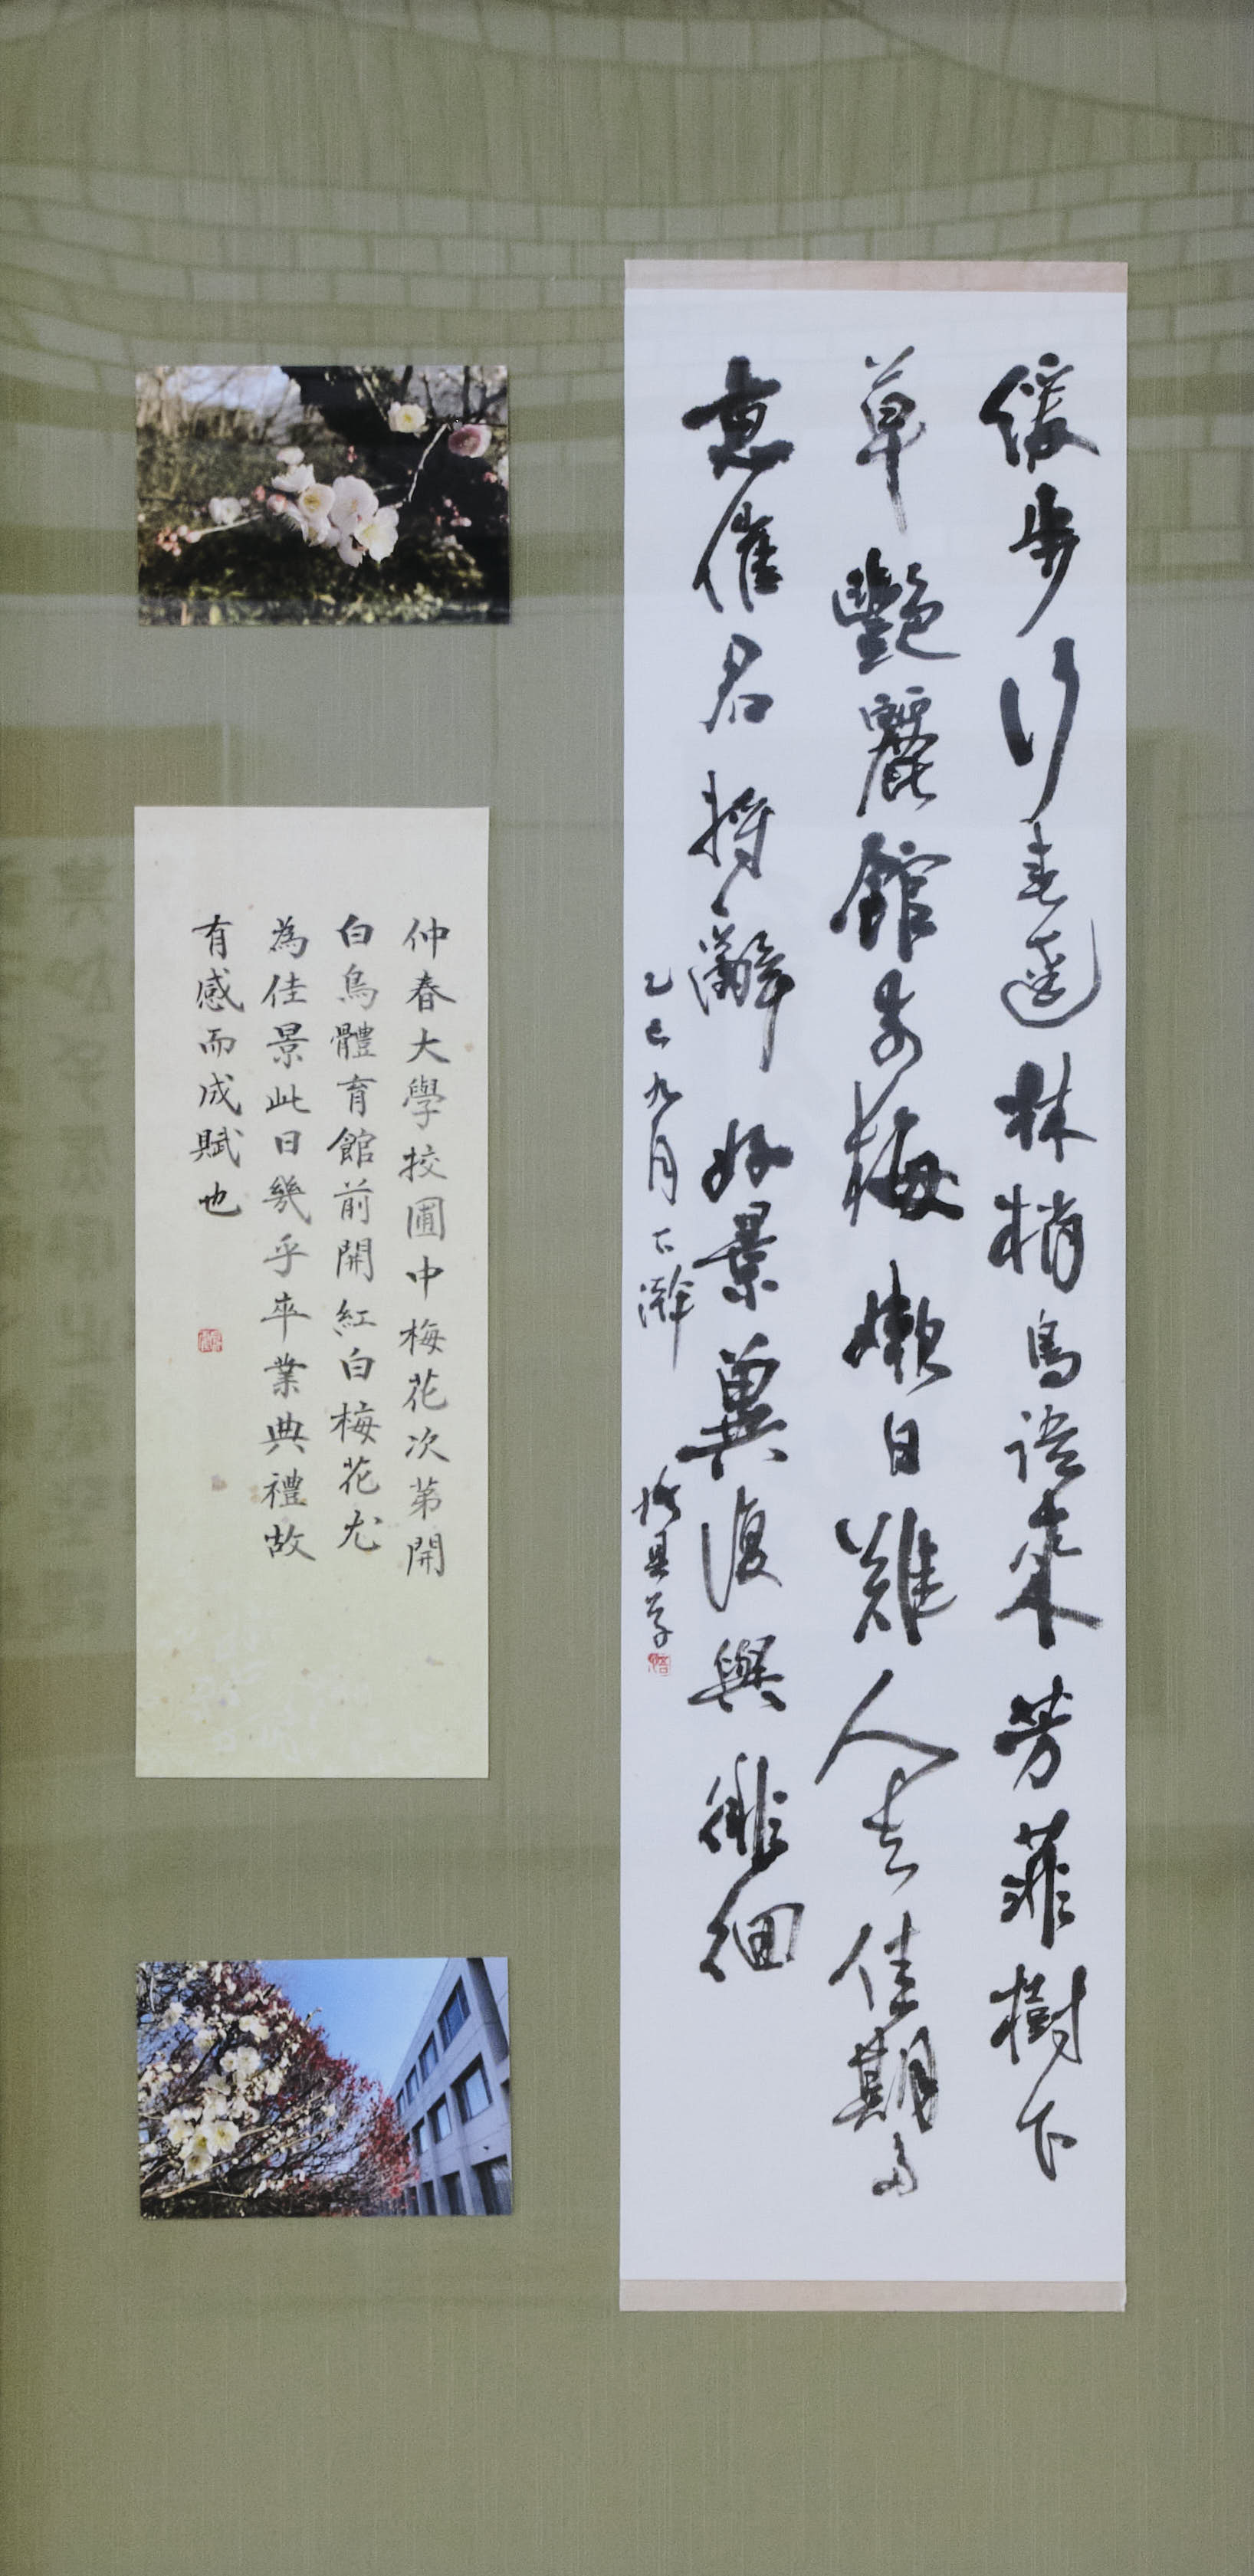 緩步行春林梢鳥語來芳菲樹下
草艷麗館前梅嫩日難人去佳期
催君將辭好景冀復與徘徊
乙巳九月下澣
仲春大學校圃中梅花次第開
白鳥體育館前開紅白梅花尤
為佳景此日幾乎卒業典禮故
有感而成賦也